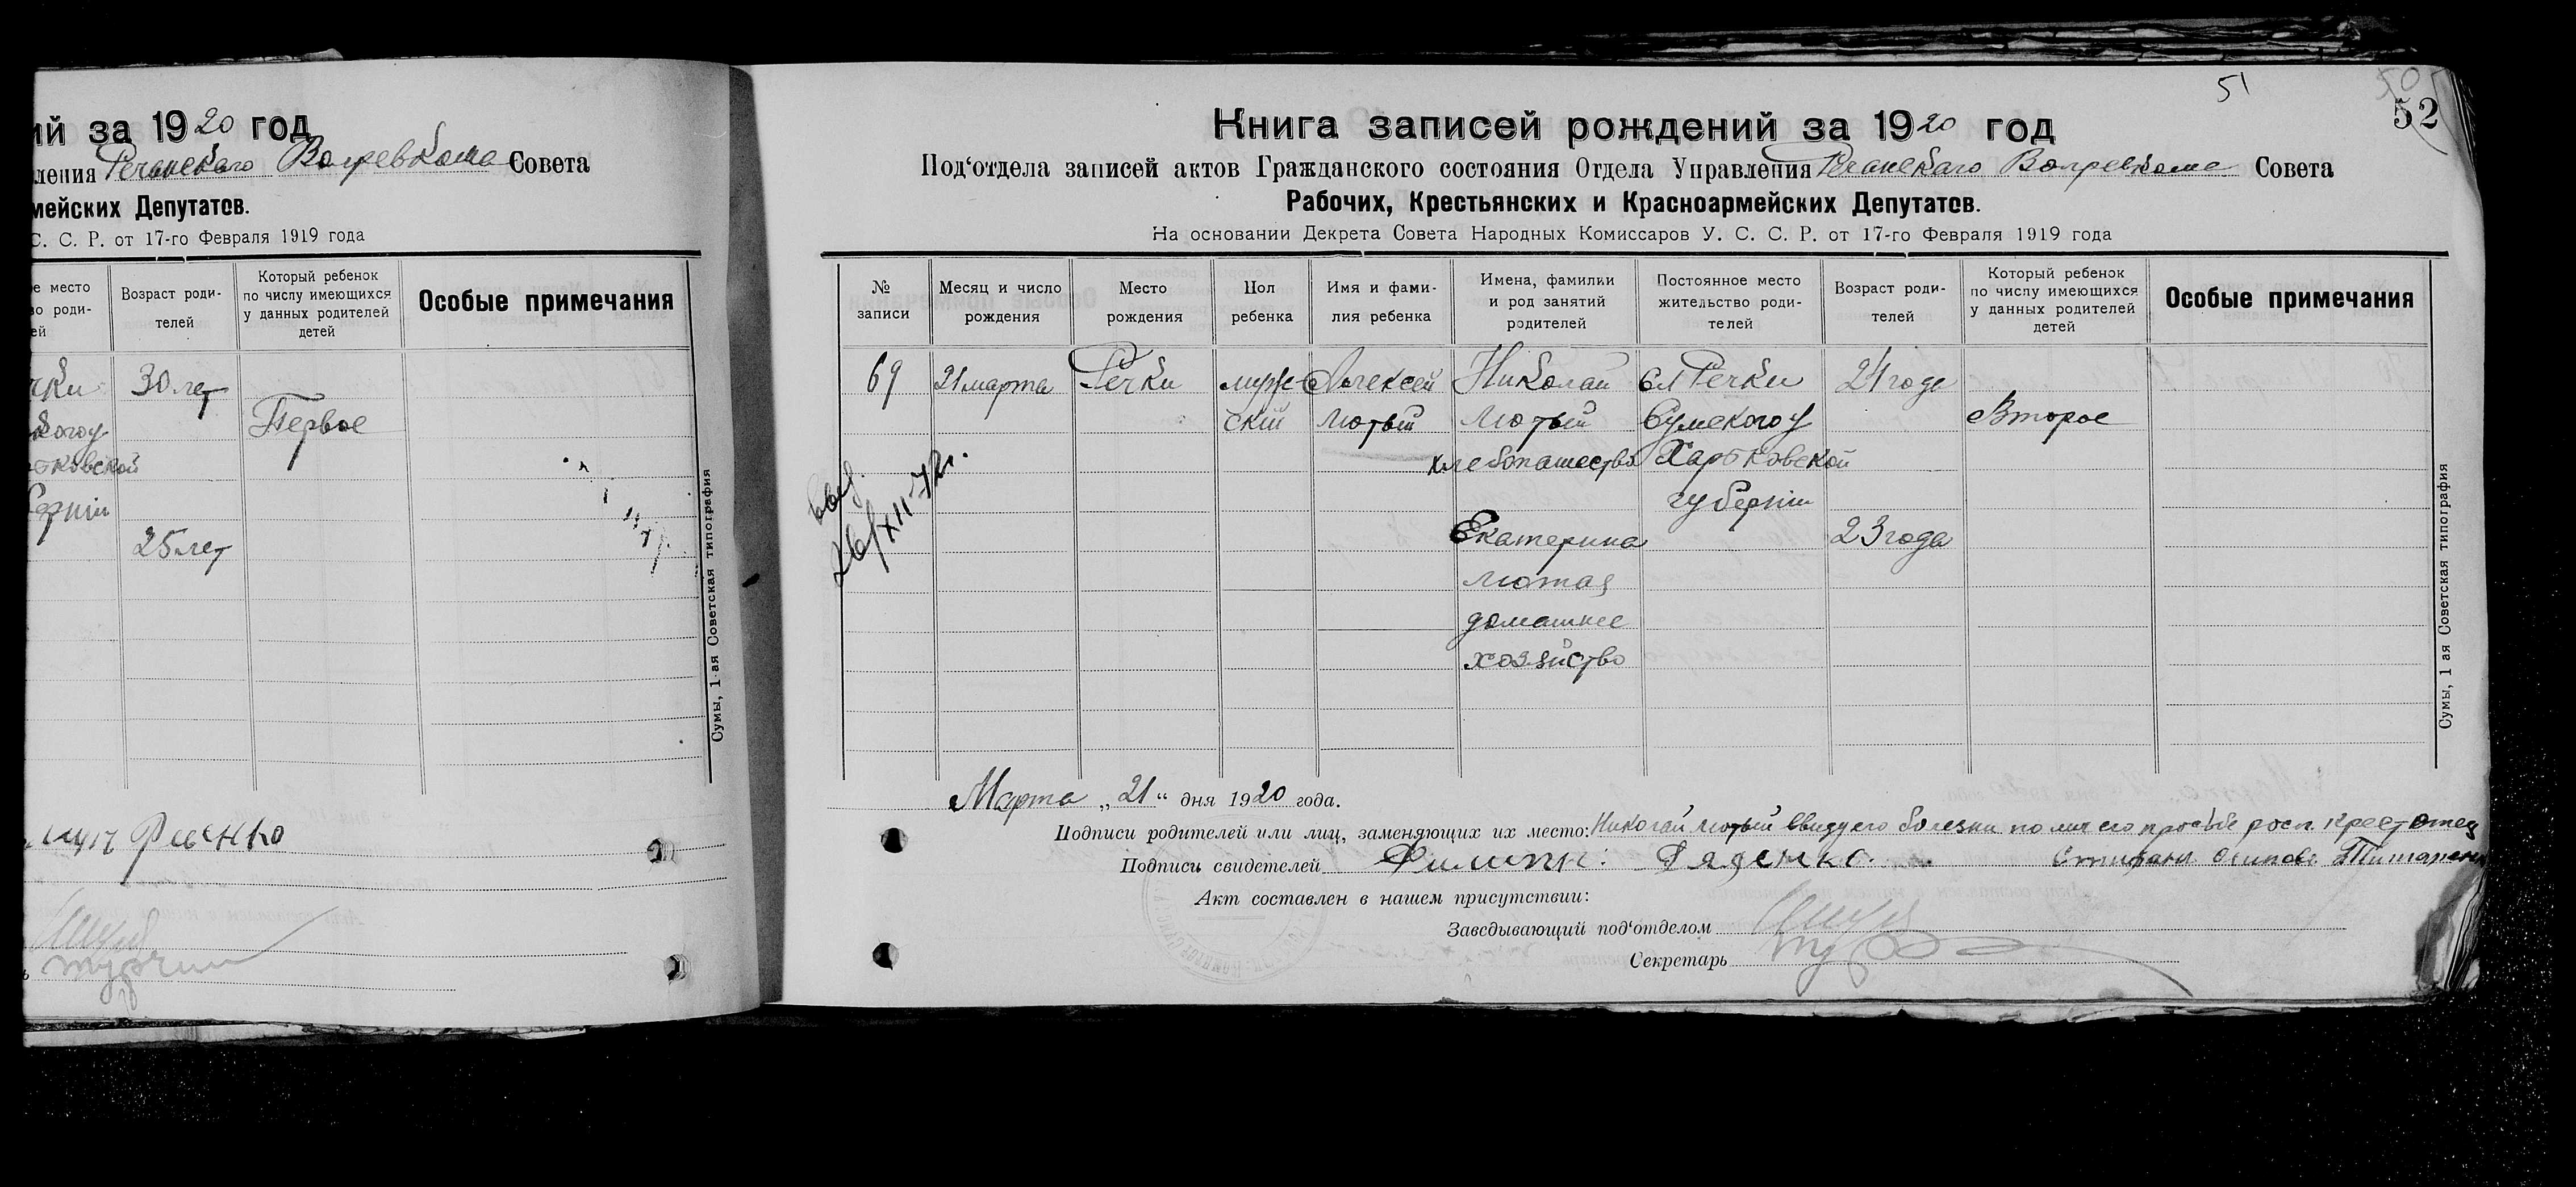 ий за 1920 год
ления Речанскаго Волревкома Совета
мейских Депутатов.
С. С. Р. от 17-го Февраля 1919 года
е место
во роди-
ей
Возраст роди-
телей
Который ребенок
по числу имеющихся
у данных родителей
детей
Особые примечания
чки 30 лет
Первое
ского у
ковской
ернии
25 лет
Сумы, 1-ая Советская типография
51
52
Книга записей рождений за 1920 год
Под‘отдела записей актов Гражданского состояния Отдела Управления Речанскаго Волревкома Совета
Рабочих, Крестьянских и Красноармейских Депутатов.
На основании Декрета Совета Народных Комиссаров У. С. С. Р. от 17-го Февраля 1919 года
№
записи
Месяц и число
рождения
Место
рождения
Пол
ребенка
Имя и фами-
лия ребенка
Имена, фамилии
и род занятий
родителей
Постоянное место
жительство роди-
телей
Возраст роди-
телей
Который ребенок
по числу имеющихся
у данных родителей
детей
Особые примечания
69 21 марта Речки муж- Алексей Николай Сл Речки 24 года
ский Лютый Лютый Сумского у Второе
хлебопашество Харьковской
губернии
Екатерина 23 года
Лютая
домашнее
хозяйство
26/XII-72г.
Сумы, 1 ая Советская типография
Марта „21“ дня 1920 года.
Подписи родителей или лиц, заменяющих их место: Николай Лютый ввиду его болезни по личн его просьбе росп. крест отец
Подписи свидетелей Филипп Дяденко Осипов
Акт составлен в нашем присутствии:
Заведывающий под‘отделом
Секретарь